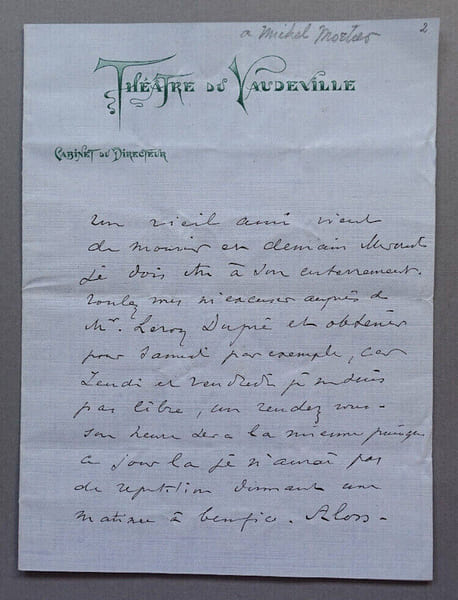 a Michel Mortier
2
THÉÂTRE DU VAUDEVILLE
CABINET DU DIRECTEUR
un vieil ami vient
de mourir et demain
Je dois etre à son enterrement.
voulez vous m'excuser auprès de
Mr. Leroy Dupré et obtenir
pour Samedi par exemple, car
Jeudi et vendredi je ne suis
pas libre, un rendez vous -
son heure sera la mienne puisque
ce jour la je n'aurai pas
de repetition donnant une
matinee à benefice. Alors -